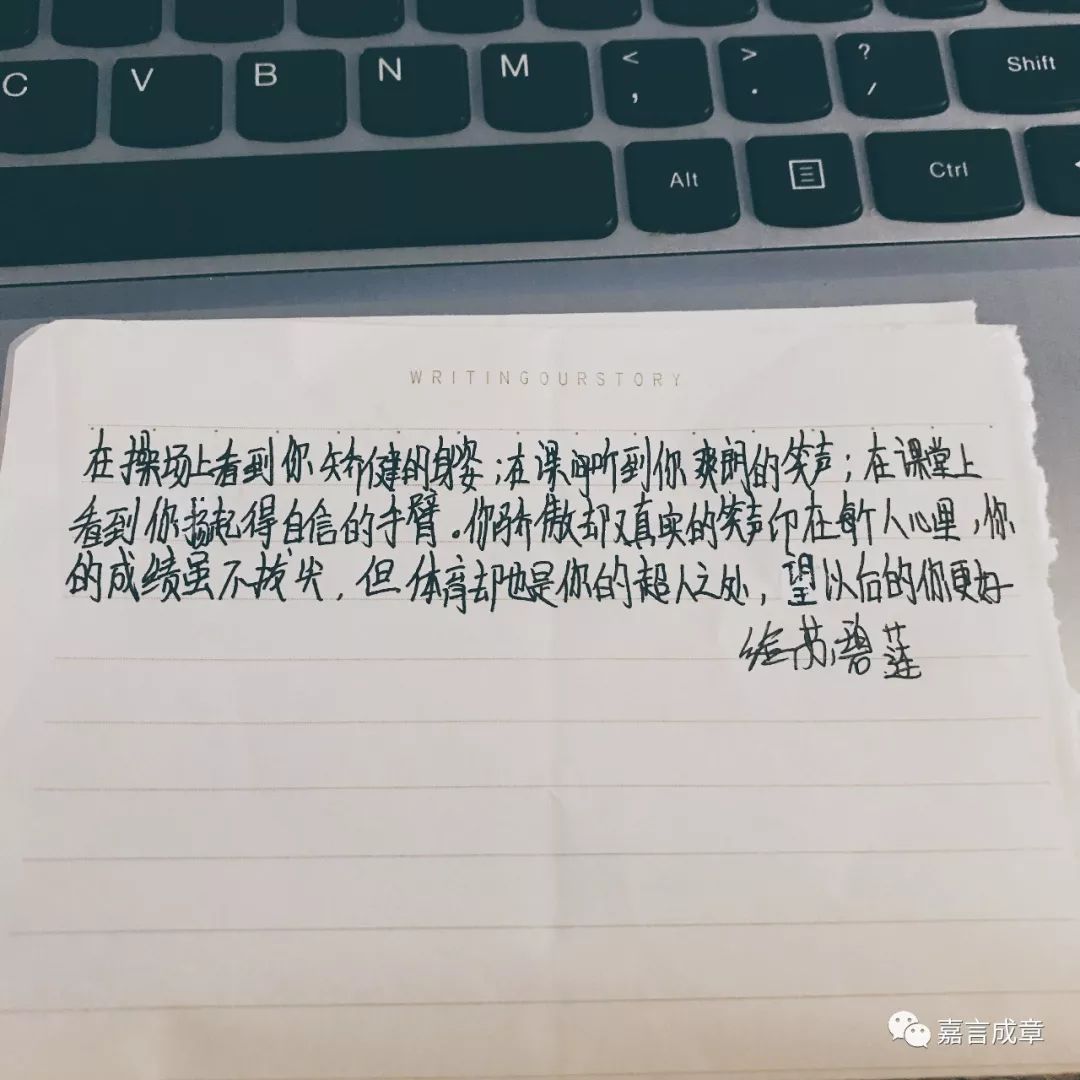 C V B N M < , > . ? / Shift
Alt Ctrl
WRITINGOURSTORY
在操场上看到你矫健的身姿；在课间听到你爽朗的笑声；在课堂上
看到你扬起得自信的手臂。你骄傲却又真实的笑声印在每个人心里，你
的成绩虽不拔尖，但体育却也是你的超人之处，望以后的你更好
给 碧莲
嘉言成章